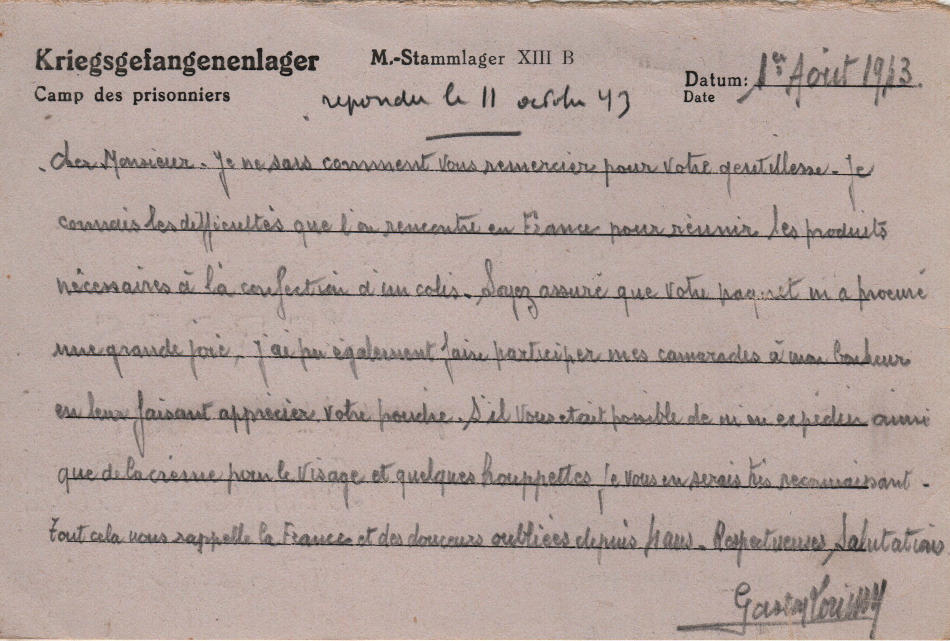 Kriegsgefangenenlager M.-Stammlager XIII B Datum: 1er Août 1943
Camp des prisonniers repondu le 11 octobre 43 Date
Cher Monsieur. Je ne sais comment vous remercier pour votre gentillesse. Je
connais les difficultés que l'on rencontre en France pour réunir les produits
nécessaires à la confection d'un colis. Soyez assuré que votre paquet m'a procuré
une grande joie, j'ai pu également faire participer mes camarades à mon bonheur
en leur faisant apprécier votre poudre. S'il vous etait possible de m'en expédier ainsi
que de la crème pour le visage et quelques houppettes je vous en serais très reconnaissant.
Tout cela nous rappelle la France et des douceurs oubliées depuis ans. Respectueuses Salutations
Gaston